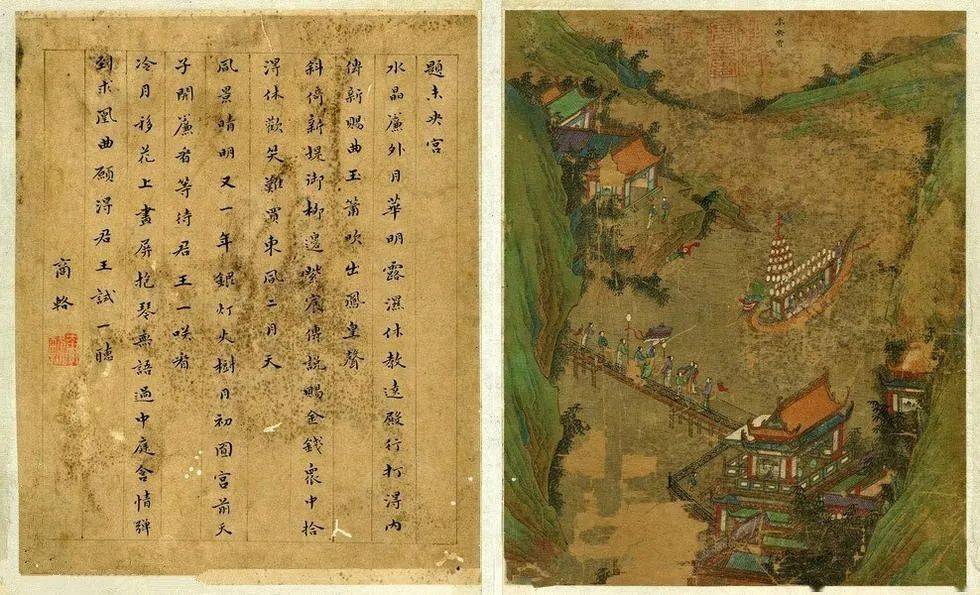 題未央宮
水晶簾外月華明露濕休教遠殿行打淂內
傳新賜曲玉簫吹出鳳皇聲
斜倚新堤御柳邊紫宸傳說賜金錢衆中拾
淂休歡笑難買東風二月天
風景晴明又一年銀灯火樹月初圓宮前天
子開簾看等待君王一咲看
冷月移花上畫屏抱琴無語過中庭含情彈
到求凰曲願淂君王試一聽
商輅
未央宮